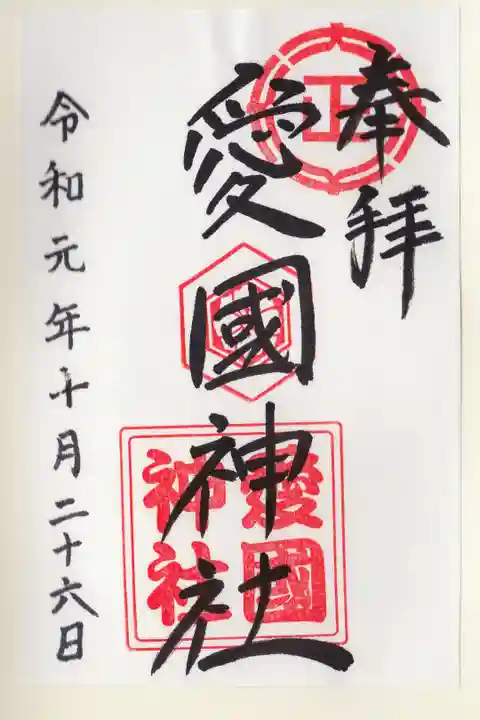 奉拝
愛國神社
愛國
神社
令和元年十月二十六日